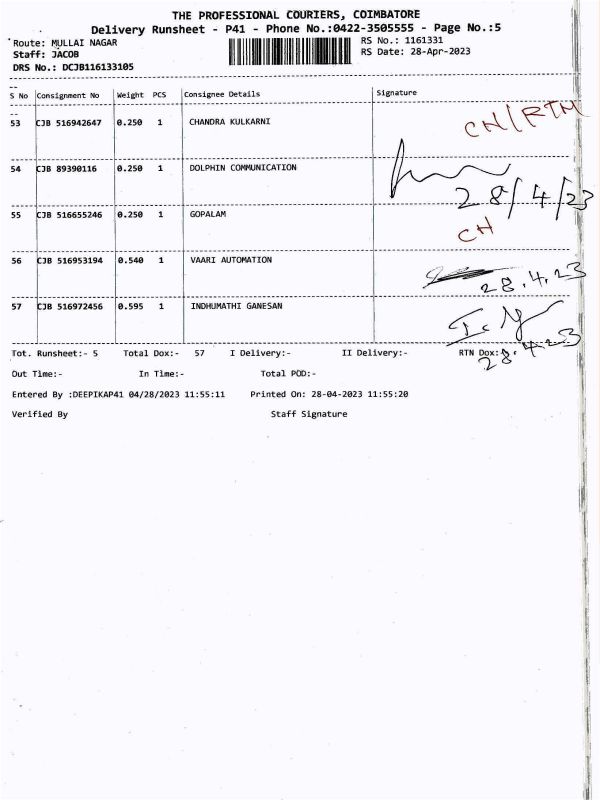 THE PROFESSIONAL COURIERS, COIMBATORE
Delivery Runsheet - P41 - Phone No.:0422-3505555 - Page No.:5
Route: MULLAI NAGAR RS No.: 1161331
Staff: JACOB RS Date: 28-Apr-2023
DRS No.: DCJB116133105
S No Consignment No Weight PCS Consignee Details Signature
53 CJB 516942647 0.250 1 CHANDRA KULKARNI CH/RTN
54 CJB 89390116 0.250 1 DOLPHIN COMMUNICATION
28/4/23
55 CJB 516655246 0.250 1 GOPALAM CH
56 CJB 516953194 0.540 1 VAARI AUTOMATION 28.4.23
57 CJB 516972456 0.595 1 INDHUMATHI GANESAN
Tot. Runsheet:- 5 Total Dox:- 57 I Delivery:- II Delivery:- RTN Dox:- 28.4.23
Out Time:- In Time:- Total POD:-
Entered By :DEEPIKAP41 04/28/2023 11:55:11 Printed On: 28-04-2023 11:55:20
Verified By Staff Signature